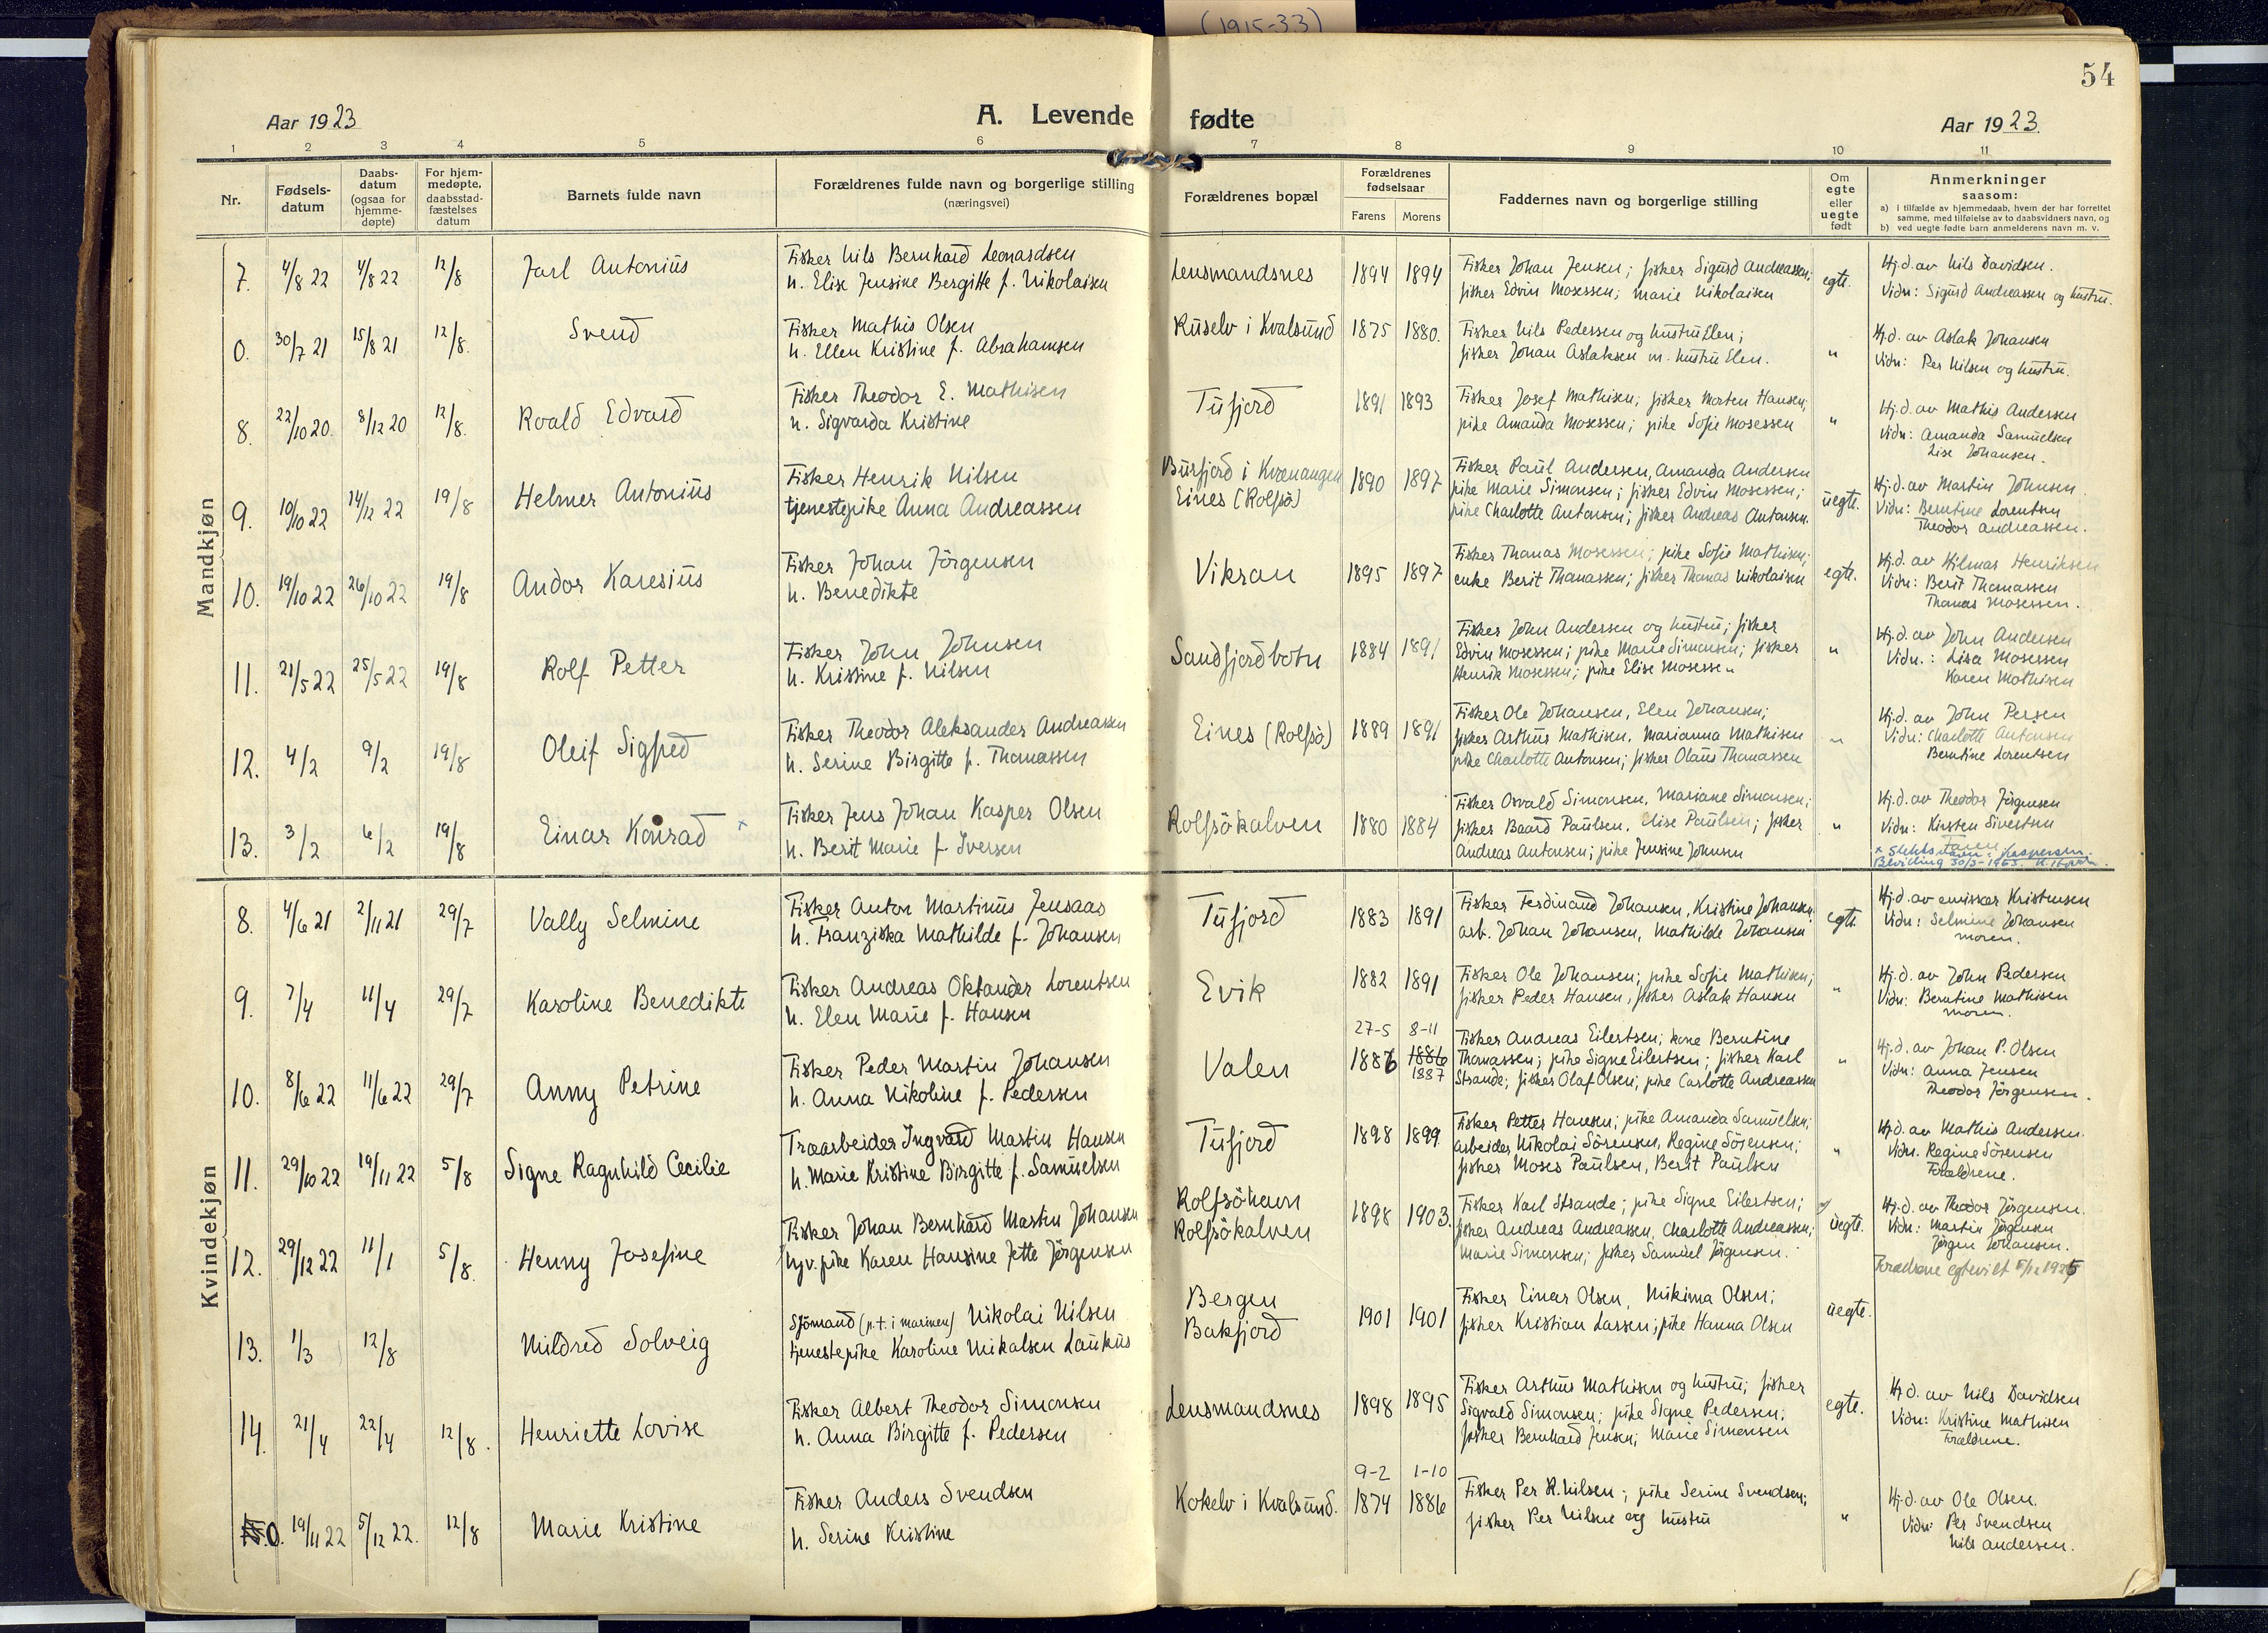 (1915-33)
54
Aar 1923
A. Levende fødte
Aar 1923.
1 2 3 4 5 6 7 8 9 10 11
Nr.
Fødsels-
datum
Daabs-
datum
(ogsaa for
hjemme-
døpte)
For hjem-
medøpte,
daabsstad-
fæstelses
datum
Barnets fulde navn
Forældrenes fulde navn og borgerlige stilling
(næringsvei)
Forældrenes bopæl
Forældrenes
fødselsaar
Farens Morens
Faddernes navn og borgerlige stilling
Om
egte
eller
uegte
født
Anmerkninger
saasom:
a) i tilfælde av hjemmedaab, hvem der har forrettet
samme, med tilføielse av to daabsvidners navn, og
b) ved uegte fødte barn anmelderens navn m. v.
Mandkjøn
7. 4/8 22 4/8 22 12/8 Jarl Antonius
Fisker Nils Bernhard Leonardsen
h. Elise Jensine Bergitte f. Nikolaisen
Lensmandsnes 1894 1894
Fisker Johan Jensen; fisker Sigurd Andreassen;
fisker Edvin Mosessen; Marie Nikolaisen
egte.
Hj.d. av Nils Davidsen.
Vidn: Sigurd Andreassen og hustru.
0. 30/7 21 15/8 21 12/8. Svend
Fisker Mathis Olsen
h. Ellen Kristine f. Abrahamsen
Kuselv i Kvalsund 1875 1880.
Fisker Nils Pedersen og hustru Elen;
fisker Johan Aslaksen m. hustru Elen.
"
Hj.d. av Aslak Johansen
Vidn: Per Nilsen og hustru.
8. 22/10 20. 8/12 20 12/8. Roald Edvard
Fisker Theodor E. Mathisen
h. Sigvarda Kristine
Tufjord 1891 1893
Fisker Josef Mathisen; fisker Morten Hansen;
pike Amanda Mosessen; pike Sofie Mosessen
"
Hj.d. av Mathis Andersen
Vidn: Amanda Samuelsen
Lise Johansen.
9. 10/10 22 14/12 22 19/8 Helmer Antonius
Fisker Henrik Nilsen
tjenestepike Anna Andreassen
Bursfjord i Kvænangen
Eines (Rolfsö)
1890 1897
Fisker Paul Andersen, Amanda Andersen
pike Marie Simonsen; fisker Edvin Mosessen;
pike Charlotte Antonsen; fisker Andreas Antonsen.
uegte.
Hj.d. av Martin Johnsen.
Vidn: Berntine Lorentsen
Theodor Andreassen.
10. 19/10 22 26/10 22 19/8 Andor Karesius
Fisker Johan Jörgensen
h. Benedikte
Vikran 1895 1897
Fisker Thomas Mosessen; pike Sofie Mathisen;
enke Berit Thomassen; fisker Thomas Nikolaisen
egte.
Hj.d. av Hilmar Henriksen
Vidn: Berit Thomassen
Thomas Mosessen.
11. 21/5 22 25/5 22 19/8 Rolf Petter
Fisker John Johnsen
h. Kristine f. Nilsen
Sandfjordbotn 1884 1891
Fisker John Andersen og hustru; fisker
Edvin Mosessen; pike Marie Simonsen; fisker
Henrik Mosessen; pike Elise Mosessen
"
Hj.d. av John Andersen
Vidn.: Lisa Mosessen
Karen Mathisen
12. 4/2 9/2 19/8 Oleif Sigfred
Fisker Theodor Aleksander Andreassen
h. Serine Birgitte f. Thomassen
Eines (Rolfsö) 1889 1891
Fisker Ole Johansen, Elen Johansen;
fisker Arthur Mathisen, Marianna Mathisen
pike Charlotte Antonsen; fisker Olaus Thomassen
"
Hj.d. av John Persen
Vidn: Charlotte Antonsen
Berntine Lorentsen
13. 3/2 6/2 19/8 Einar Konrad x
Fisker Jens Johan Kasper Olsen
h. Berit Marie f. Iversen
Rolfsökalven 1880 1884
Fisker Osvald Simonsen, Mariane Simonsen;
fisker Baard Paulsen, Elise Paulsen; fisker
Andreas Antonsen; pike Jensine Johnsen
"
Hj.d. av Theodor Jörgensen
Vidn: Kirsten Sivertsen
x Slektsnavn: Kaspersen.
Bevilling 30/3-1953.
Kvindekjøn
8. 4/6 21 2/11 21 29/7 Vally Selmine
Fisker Anton Martinus Jensaas
h. Franziska Mathilde f. Johansen
Tufjord 1883 1891
Fisker Ferdinand Johansen, Kristine Johansen
arb. Johan Johansen, Mathilde Johansen
egte.
Hj.d. av emissær Kristensen
Vidn: Selmine Johansen
moren.
9. 7/4 11/4 29/7 Karoline Benedikte
Fisker Andreas Oktander Lorentsen
h. Elen Marie f. Hansen
Evik 1882 1891
Fisker Ole Johansen; pike Sofie Mathisen;
fisker Peder Hansen, fisker Aslak Hansen
"
Hj.d. av John Pedersen
Vidn: Berntine Mathisen
moren.
10. 8/6 22 11/6 22 29/7 Anny Petrine
Fisker Peder Martin Johansen
h. Anna Nikoline f. Pedersen
Valen
27-5 8-11
1886 1886
1887
Fisker Andreas Eilertsen; kone Berntine
Thomassen; pike Signe Eilertsen; fisker Karl
Strande; fisker Olaf Olsen; pike Carlotte Andreassen
"
Hj.d. av Johan P. Olsen
Vidn: Anna Jensen
Theodor Jörgensen.
11. 29/10 22 19/11 22 5/8 Signe Ragnhild Cecilie
Træarbeider Ingvard Martin Hansen
h. Marie Kristine Birgitte f. Samuelsen
Tufjord 1898 1899
Fisker Petter Hansen; pike Amanda Samuelsen;
arbeider Nikolai Sörensen, Regine Sörensen;
fisker Moses Paulsen, Berit Paulsen
"
Hj.d. av Mathis Andersen.
Vidn. Regine Sörensen
Forældrene.
12. 29/12 22 11/1 5/8. Henny Josefine
Fisker Johan Bernhard Martin Johansen
hjv. pike Karen Hansine Jette Jörgensen
Rolfsöhavn
Rolfsökalven
1898 1903.
Fisker Karl Strande; pike Signe Eilertsen;
fisker Andreas Andreassen, Charlotte Andreassen;
Marie Simonsen; fisker Samuel Jörgensen.
uegte.
Hj.d. av Theodor Jörgensen.
Vidn: Martin Jörgensen
Jörgen Johansen.
Forældrene egteviet 5/12 1925
13. 1/3 12/8 Mildred Solveig
Sjömand (p.t. i marinen) Nikolai Nilsen
tjenestepike Karoline Mikalsen Laukus
Bergen
Bakfjord
1901 1901
Fisker Einar Olsen, Mikima Olsen;
fisker Kristian Larsen; pike Hanna Olsen
uegte.
14. 21/4 22/4 12/8. Henriette Lovise
Fisker Albert Theodor Simonsen
h. Anna Birgitte f. Pedersen
Lensmandsnes 1898 1895
Fisker Arthur Mathisen og hustru; fisker
Sigvald Simonsen; pike Signe Pedersen;
fisker Bernhard Jensen; Marie Simonsen
egte.
Hj.d. av Nils Davidsen
Vidn: Kristine Mathisen
Forældrene.
0. 19/11 22 5/12 22. 12/8 Marie Kristine
Fisker Anders Svendsen
h. Serine Kristine
Kokelv i Kvalsund.
9-2 1-10
1874 1886
Fisker Per K. Nilsen; pike Serine Svendsen;
fisker Per Nilsen og hustru
"
Hj.d. av Ole Olsen.
Vidn: Per Svendsen
Nils Andersen.